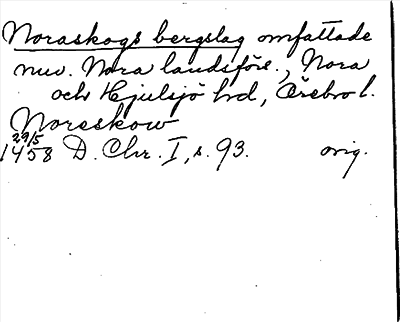 Noraskogs bergslag omfattade
nuv. Nora landsförs., Nora
och Hjulsjö hd, Örebro l.
Noreskow
29/5
1458 D. Chr. I, s. 93. orig.